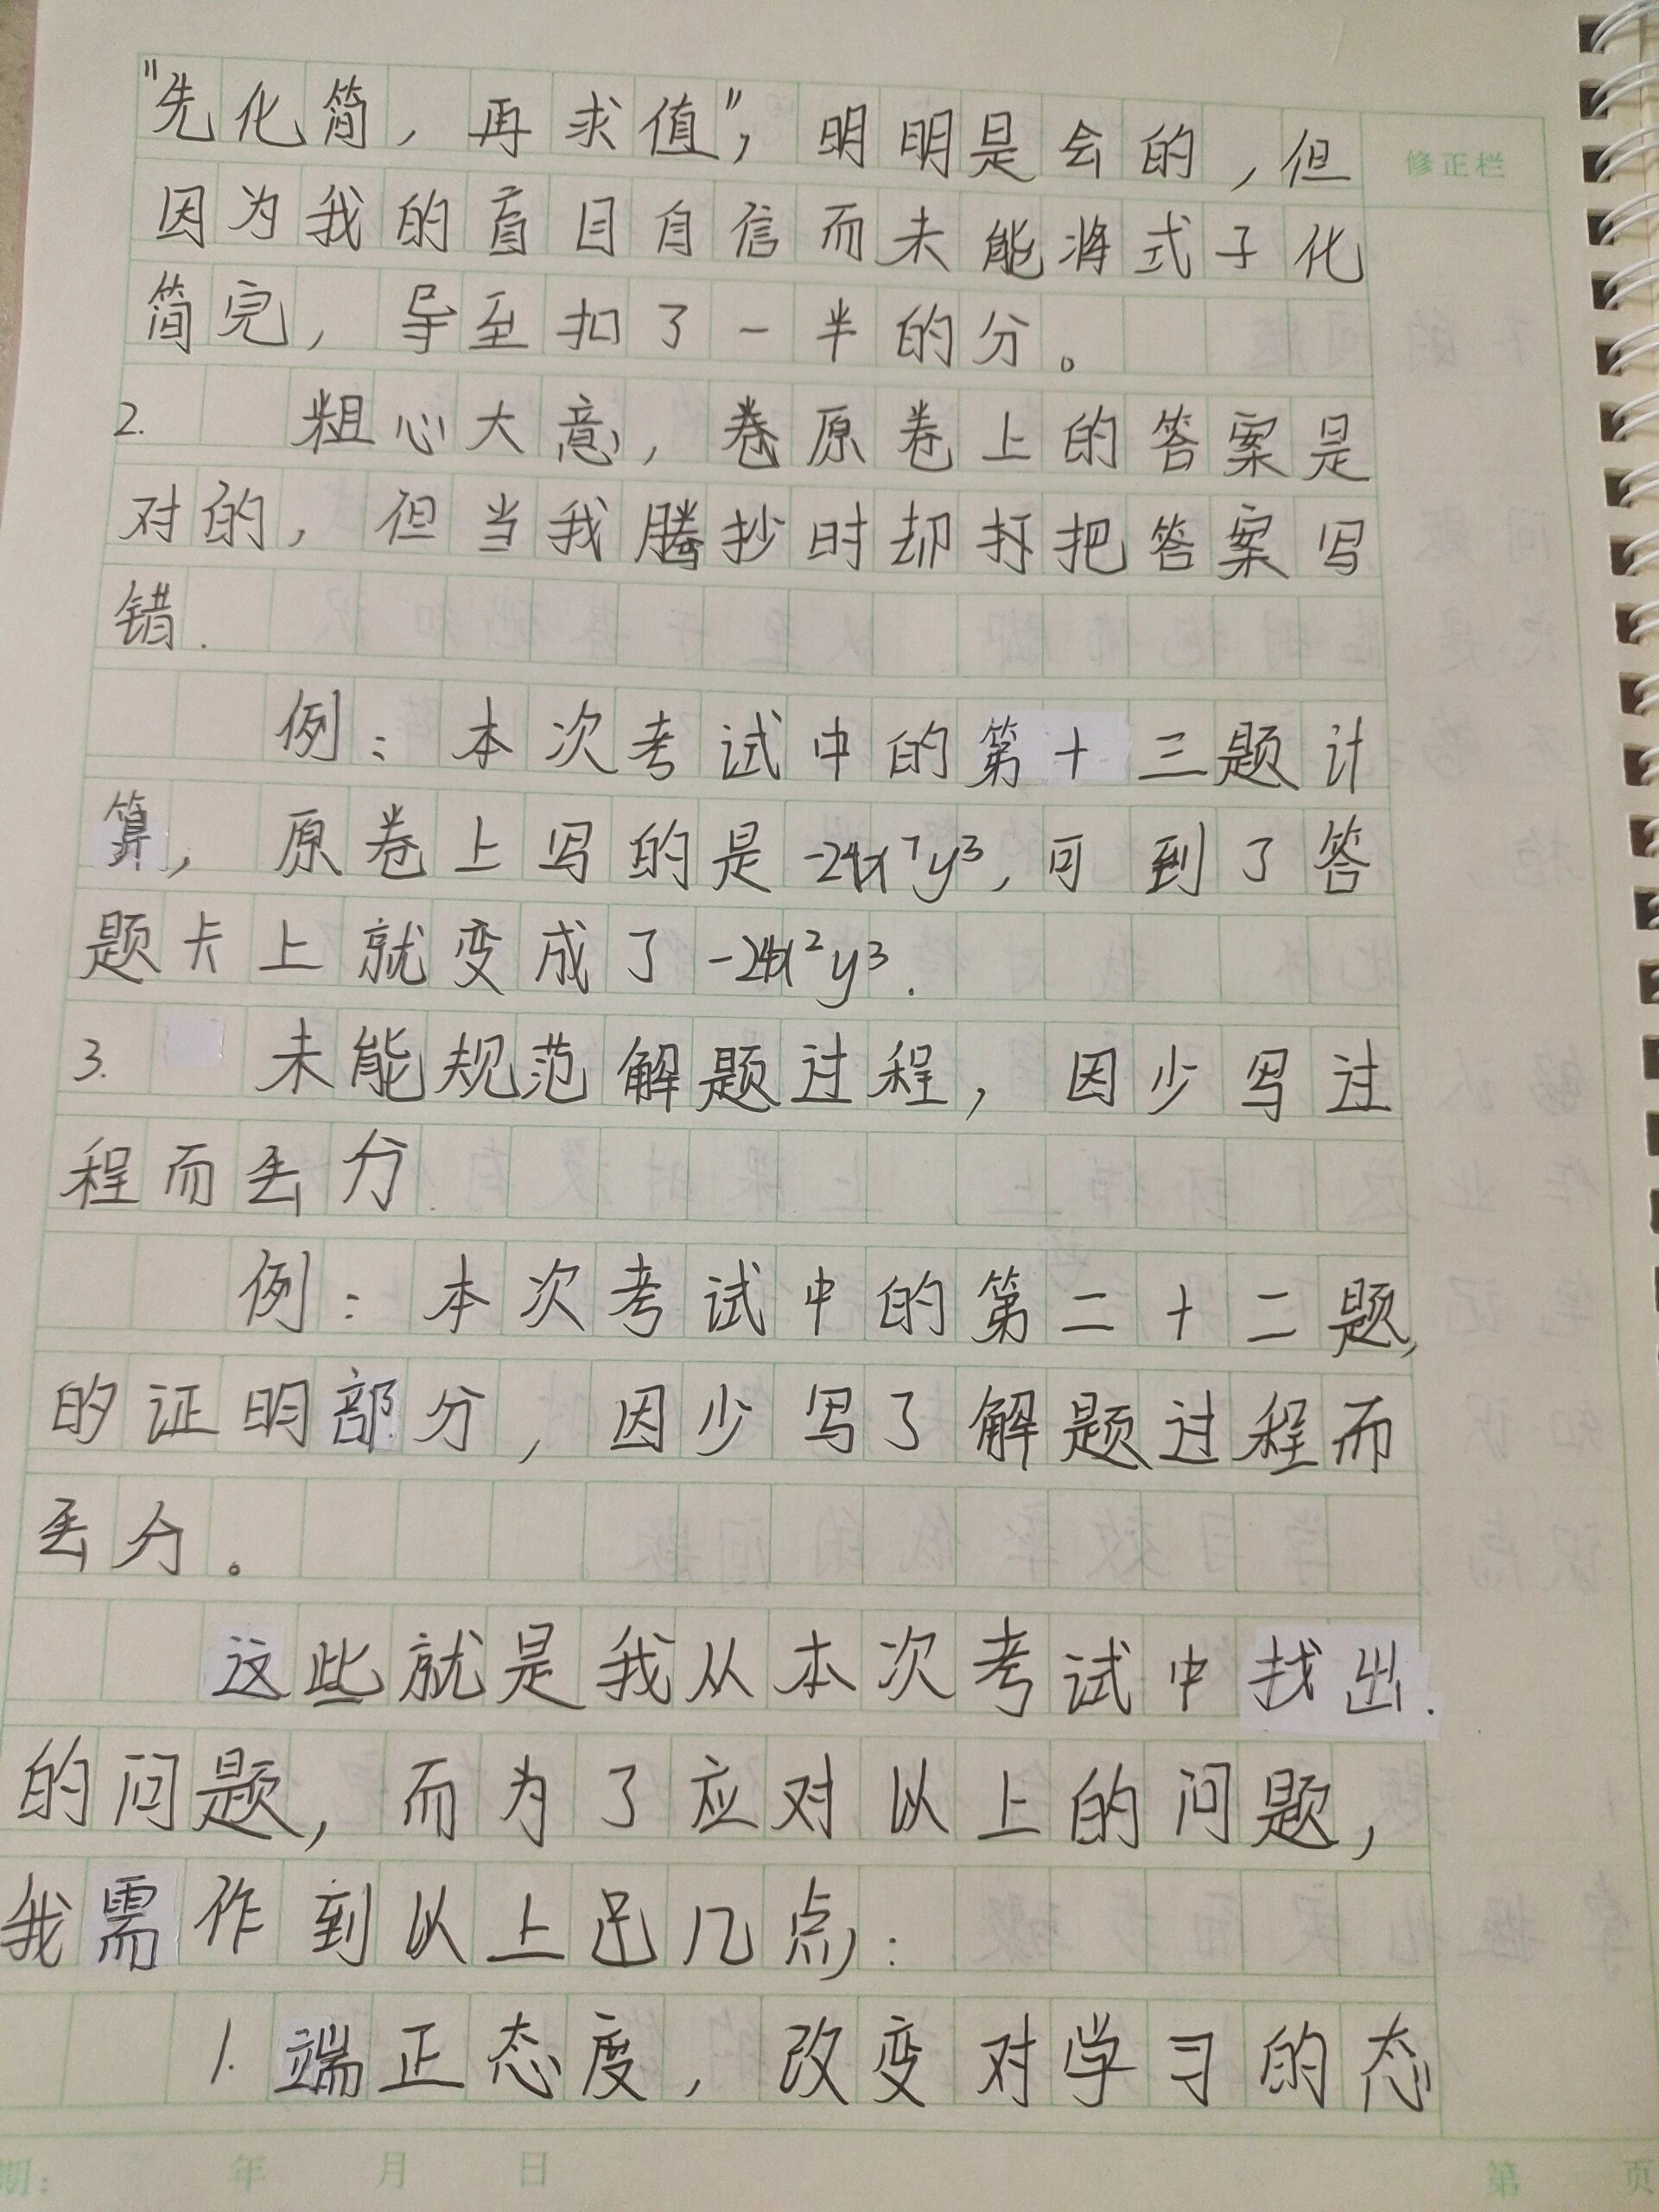 "先化简，再求值"，明明是会的，但
修正栏
因为我的盲目自信而未能将式子化
简完，导至扣了一半的分。
2. 粗心大意，卷原卷上的答案是
对的，但当我腾抄时却打把答案写
错.
例：本次考试中的第十三题计
算，原卷上写的是-24x⁷y³,可到了答
题卡上就变成了-24x²y³.
3. 未能规范解题过程，因少写过
程而丢分
例：本次考试中的第二十二题，
的证明部分，因少写了解题过程而
丢分。
这些就是我从本次考试中找出.
的问题，而为了应对以上的问题，
我需作到以上几点：
1. 端正态度，改变对学习的态
期： 年 月 日
第 页